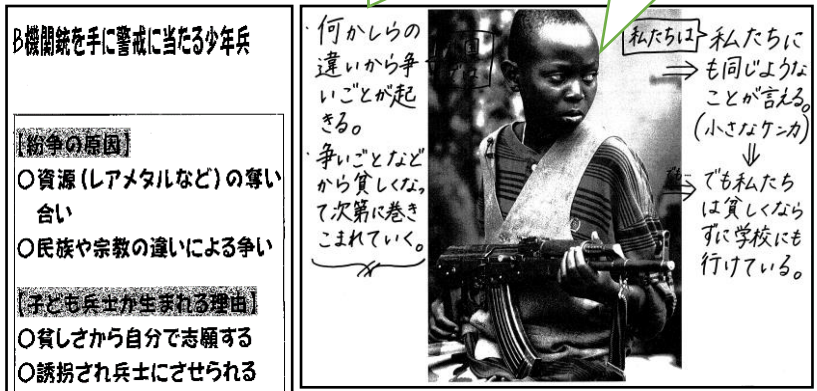 B機関銃を手に警戒に当たる少年兵
【紛争の原因】
○資源(レアメタルなど)の奪い
合い
○民族や宗教の違いによる争い
【子ども兵士が生まれる理由】
○貧しさから自分で志願する
○誘拐され兵士にさせられる
・何かしらの
違いから争
いごとが起
きる。
・争いごとなど
から貧しくなっ
て次第に巻き
こまれていく。
私たちは
私たちに
も同じような
ことが言える。
(小さなケンカ)
⇓
でも私たち
は貧しくなら
ずに学校にも
行けている。